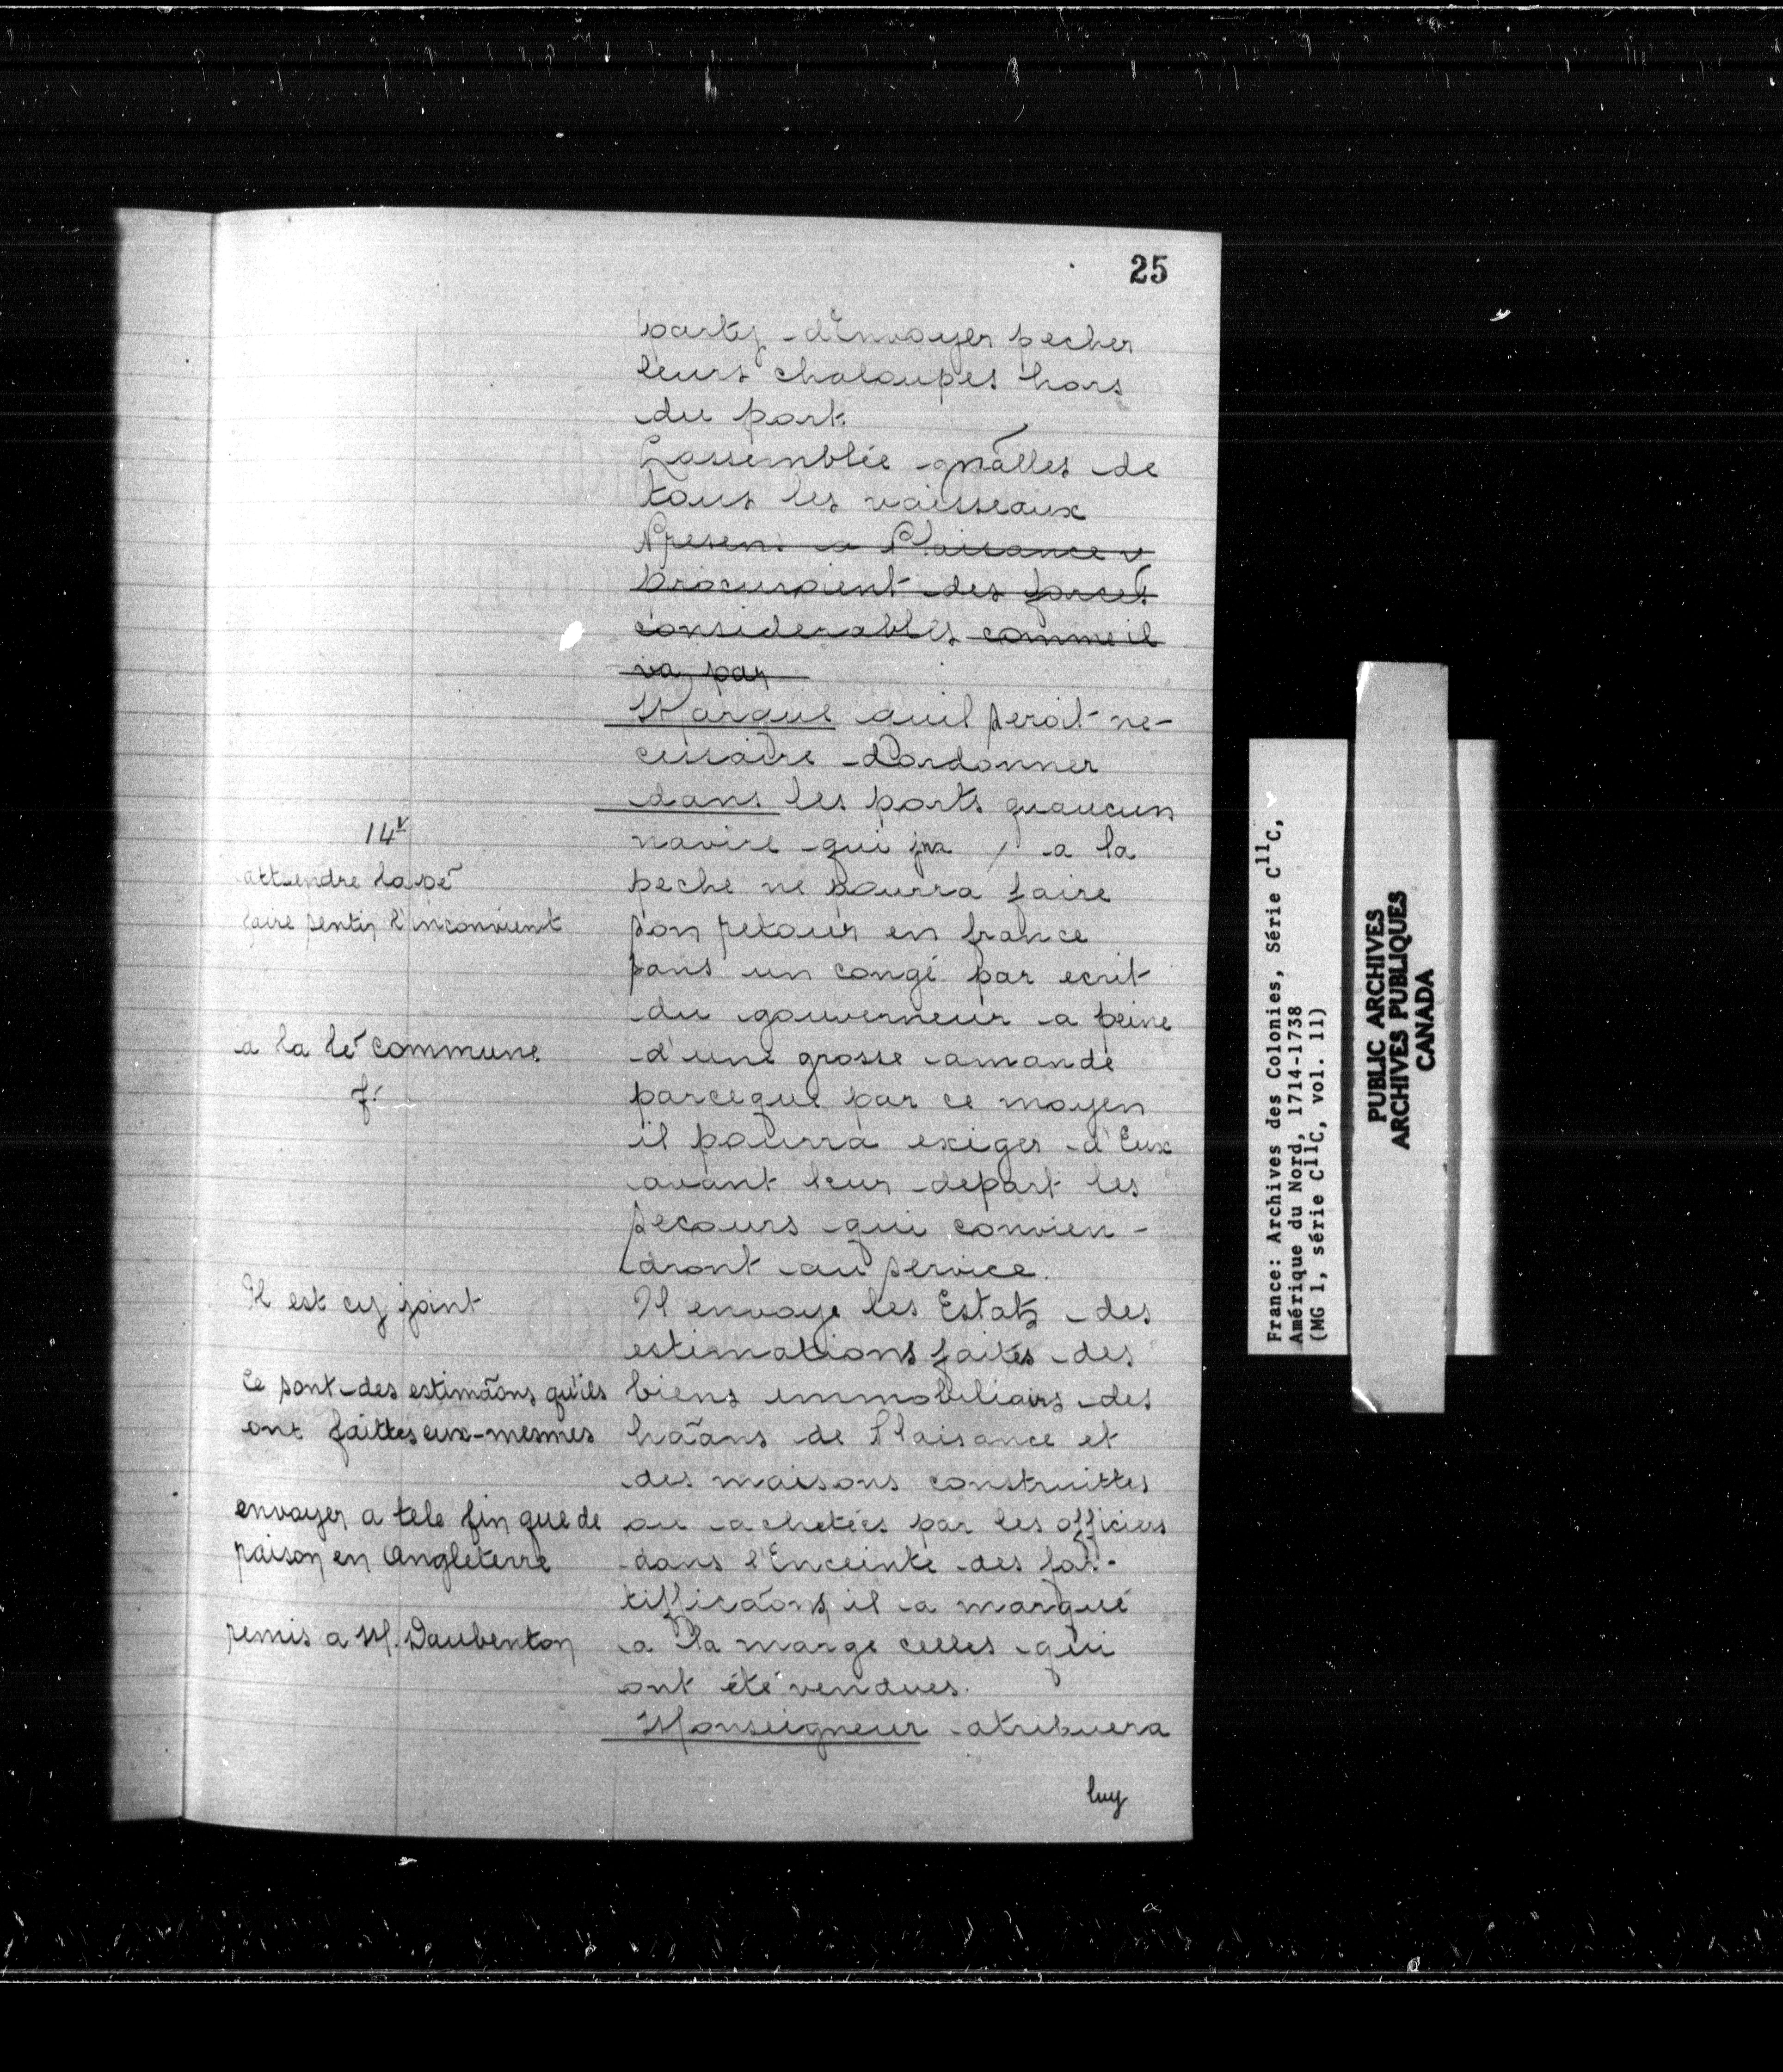 25
party d'Envoyer pecher
leurs chaloupes hors
du port.
L'assemblée gnãlles de
tous les vaisseaux
presens a Plaisance y
procuroient des forces
considerables comme il
va par
Marque quil seroit ne-
cessaire d'ordonner
dans les ports quaucun
navire qui a la
peche ne pourra faire
son retour en france
sans un congé par ecrit
du gouverneur a peine
d'une grosse amande
parceque par ce moyen
il pourra exiger d'Eux
avant leur depart les
secours qui convien-
dront au service.
Il envoye les Estats des
estimations faites des
biens immobiliairs des
hããns de Plaisance et
des maisons construittes
ou achetées par les officiers
dans l'Enceinte des for-
tifficãons il a marqué
a la marge celles qui
ont été vendues.
Monseigneur atribuera
luy
14v
attendre la pé
faire sentir l'inconvient
a la le commune
f.
Il est cy joint
Ce sont des estimãons qu'ils
ont faittes eux-mesmes
envoyer a tele fin que de
raison en Angleterre
remis a M. Daubenton
France: Archives des Colonies, Série C11C,
Amérique du Nord, 1714-1738
(MG 1, série C11C, vol. 11)
PUBLIC ARCHIVES
ARCHIVES PUBLIQUES
CANADA